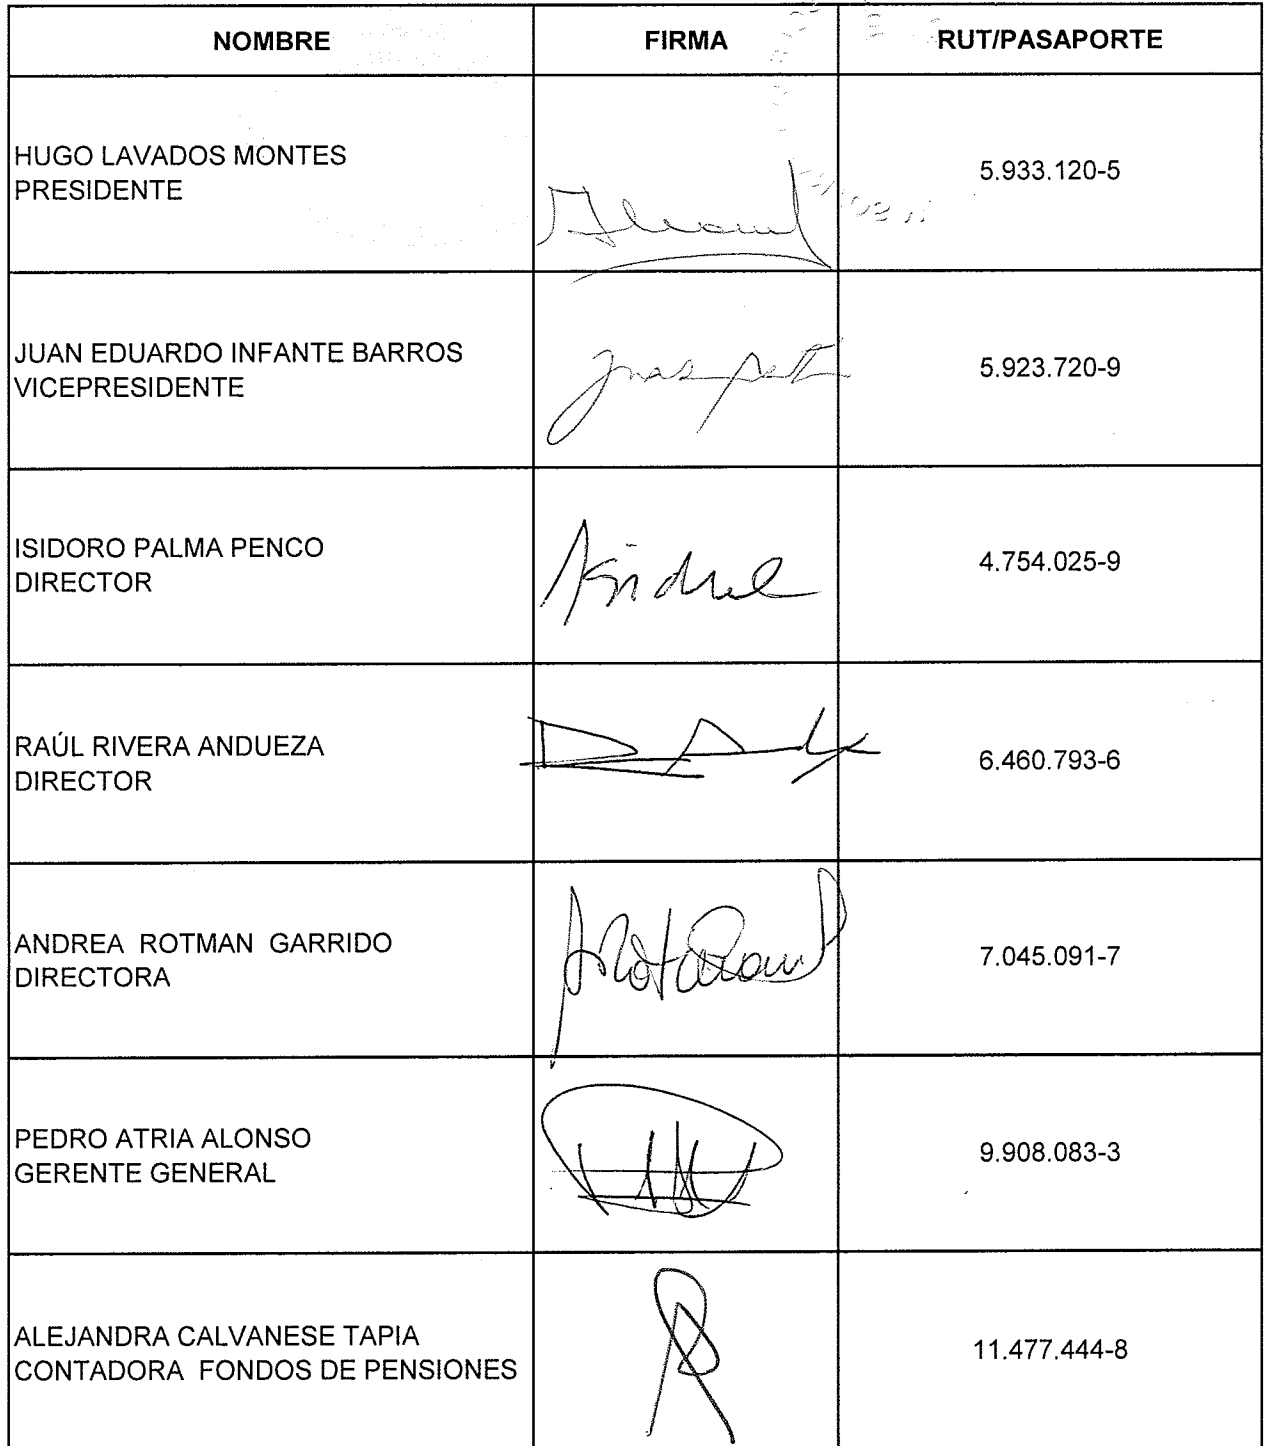 NOMBRE FIRMA RUT/PASAPORTE
HUGO LAVADOS MONTES
PRESIDENTE
5.933.120-5
JUAN EDUARDO INFANTE BARROS
VICEPRESIDENTE
5.923.720-9
ISIDORO PALMA PENCO
DIRECTOR
4.754.025-9
RAÚL RIVERA ANDUEZA
DIRECTOR
6.460.793-6
ANDREA ROTMAN GARRIDO
DIRECTORA
7.045.091-7
PEDRO ATRIA ALONSO
GERENTE GENERAL
9.908.083-3
ALEJANDRA CALVANESE TAPIA
CONTADORA FONDOS DE PENSIONES
11.477.444-8